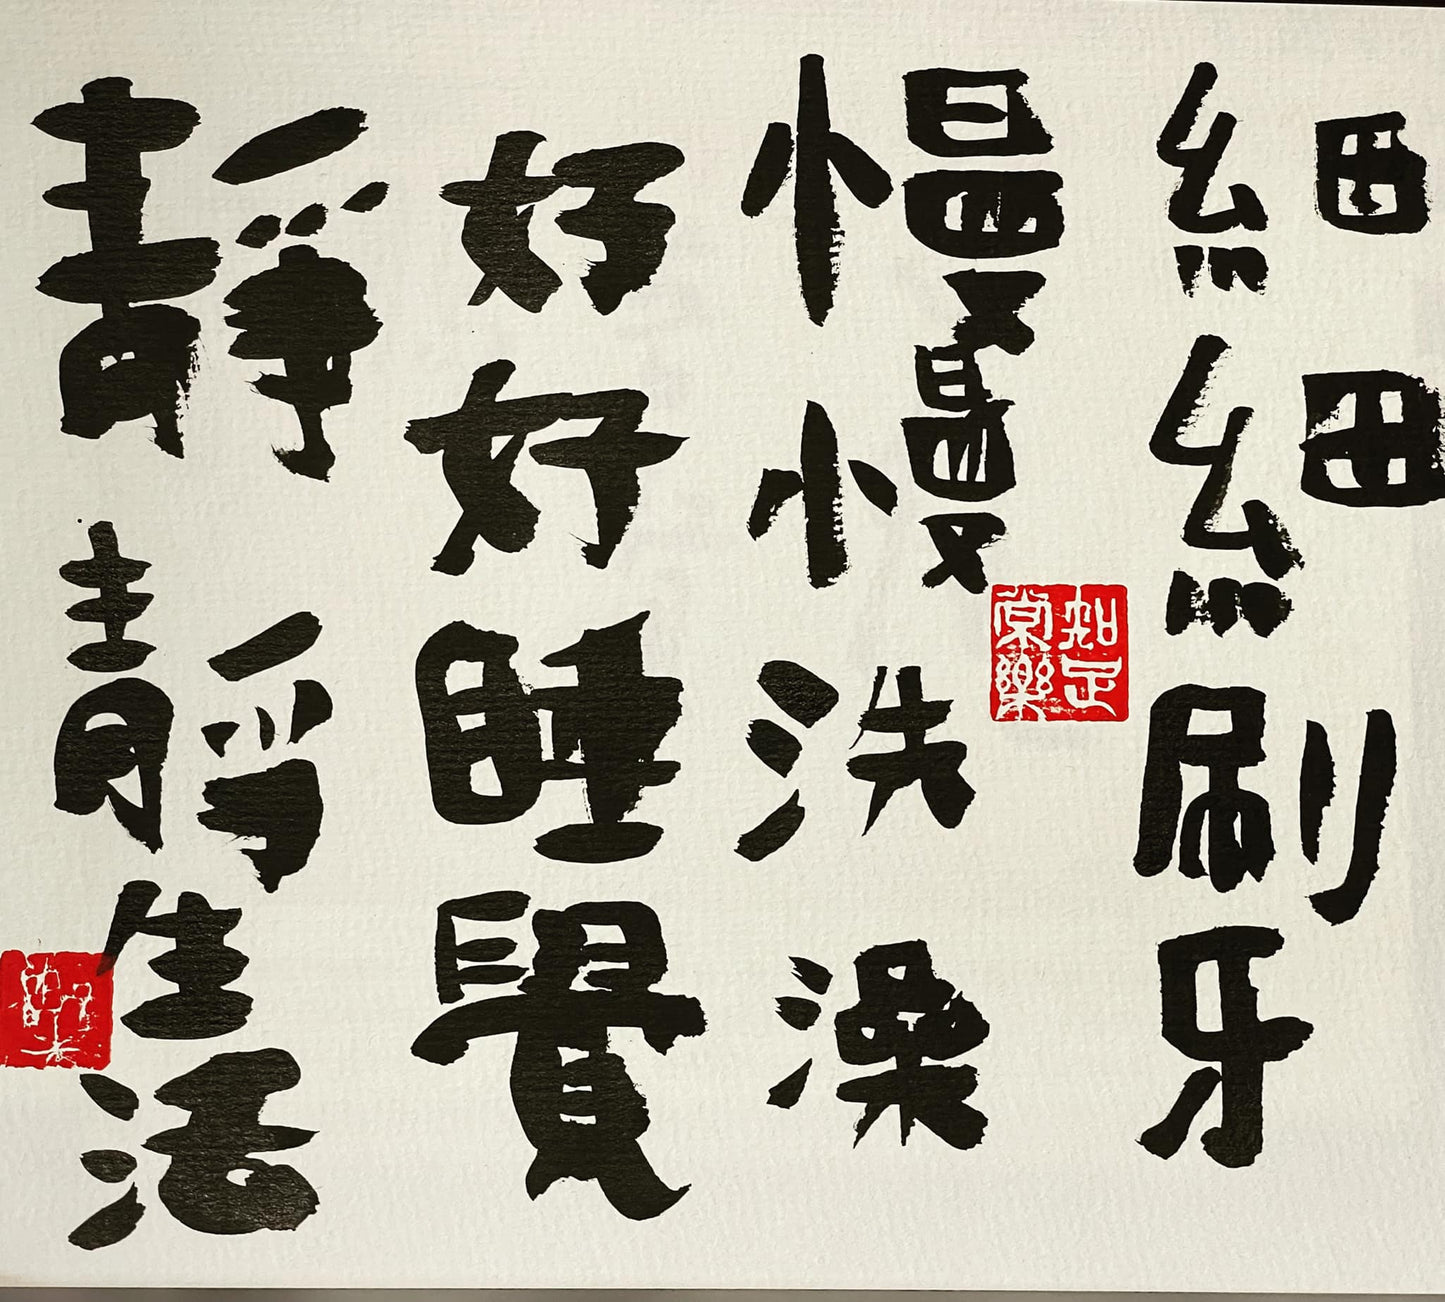 細細刷牙
慢慢洗澡
好好睡覺
靜靜生活
知足常樂